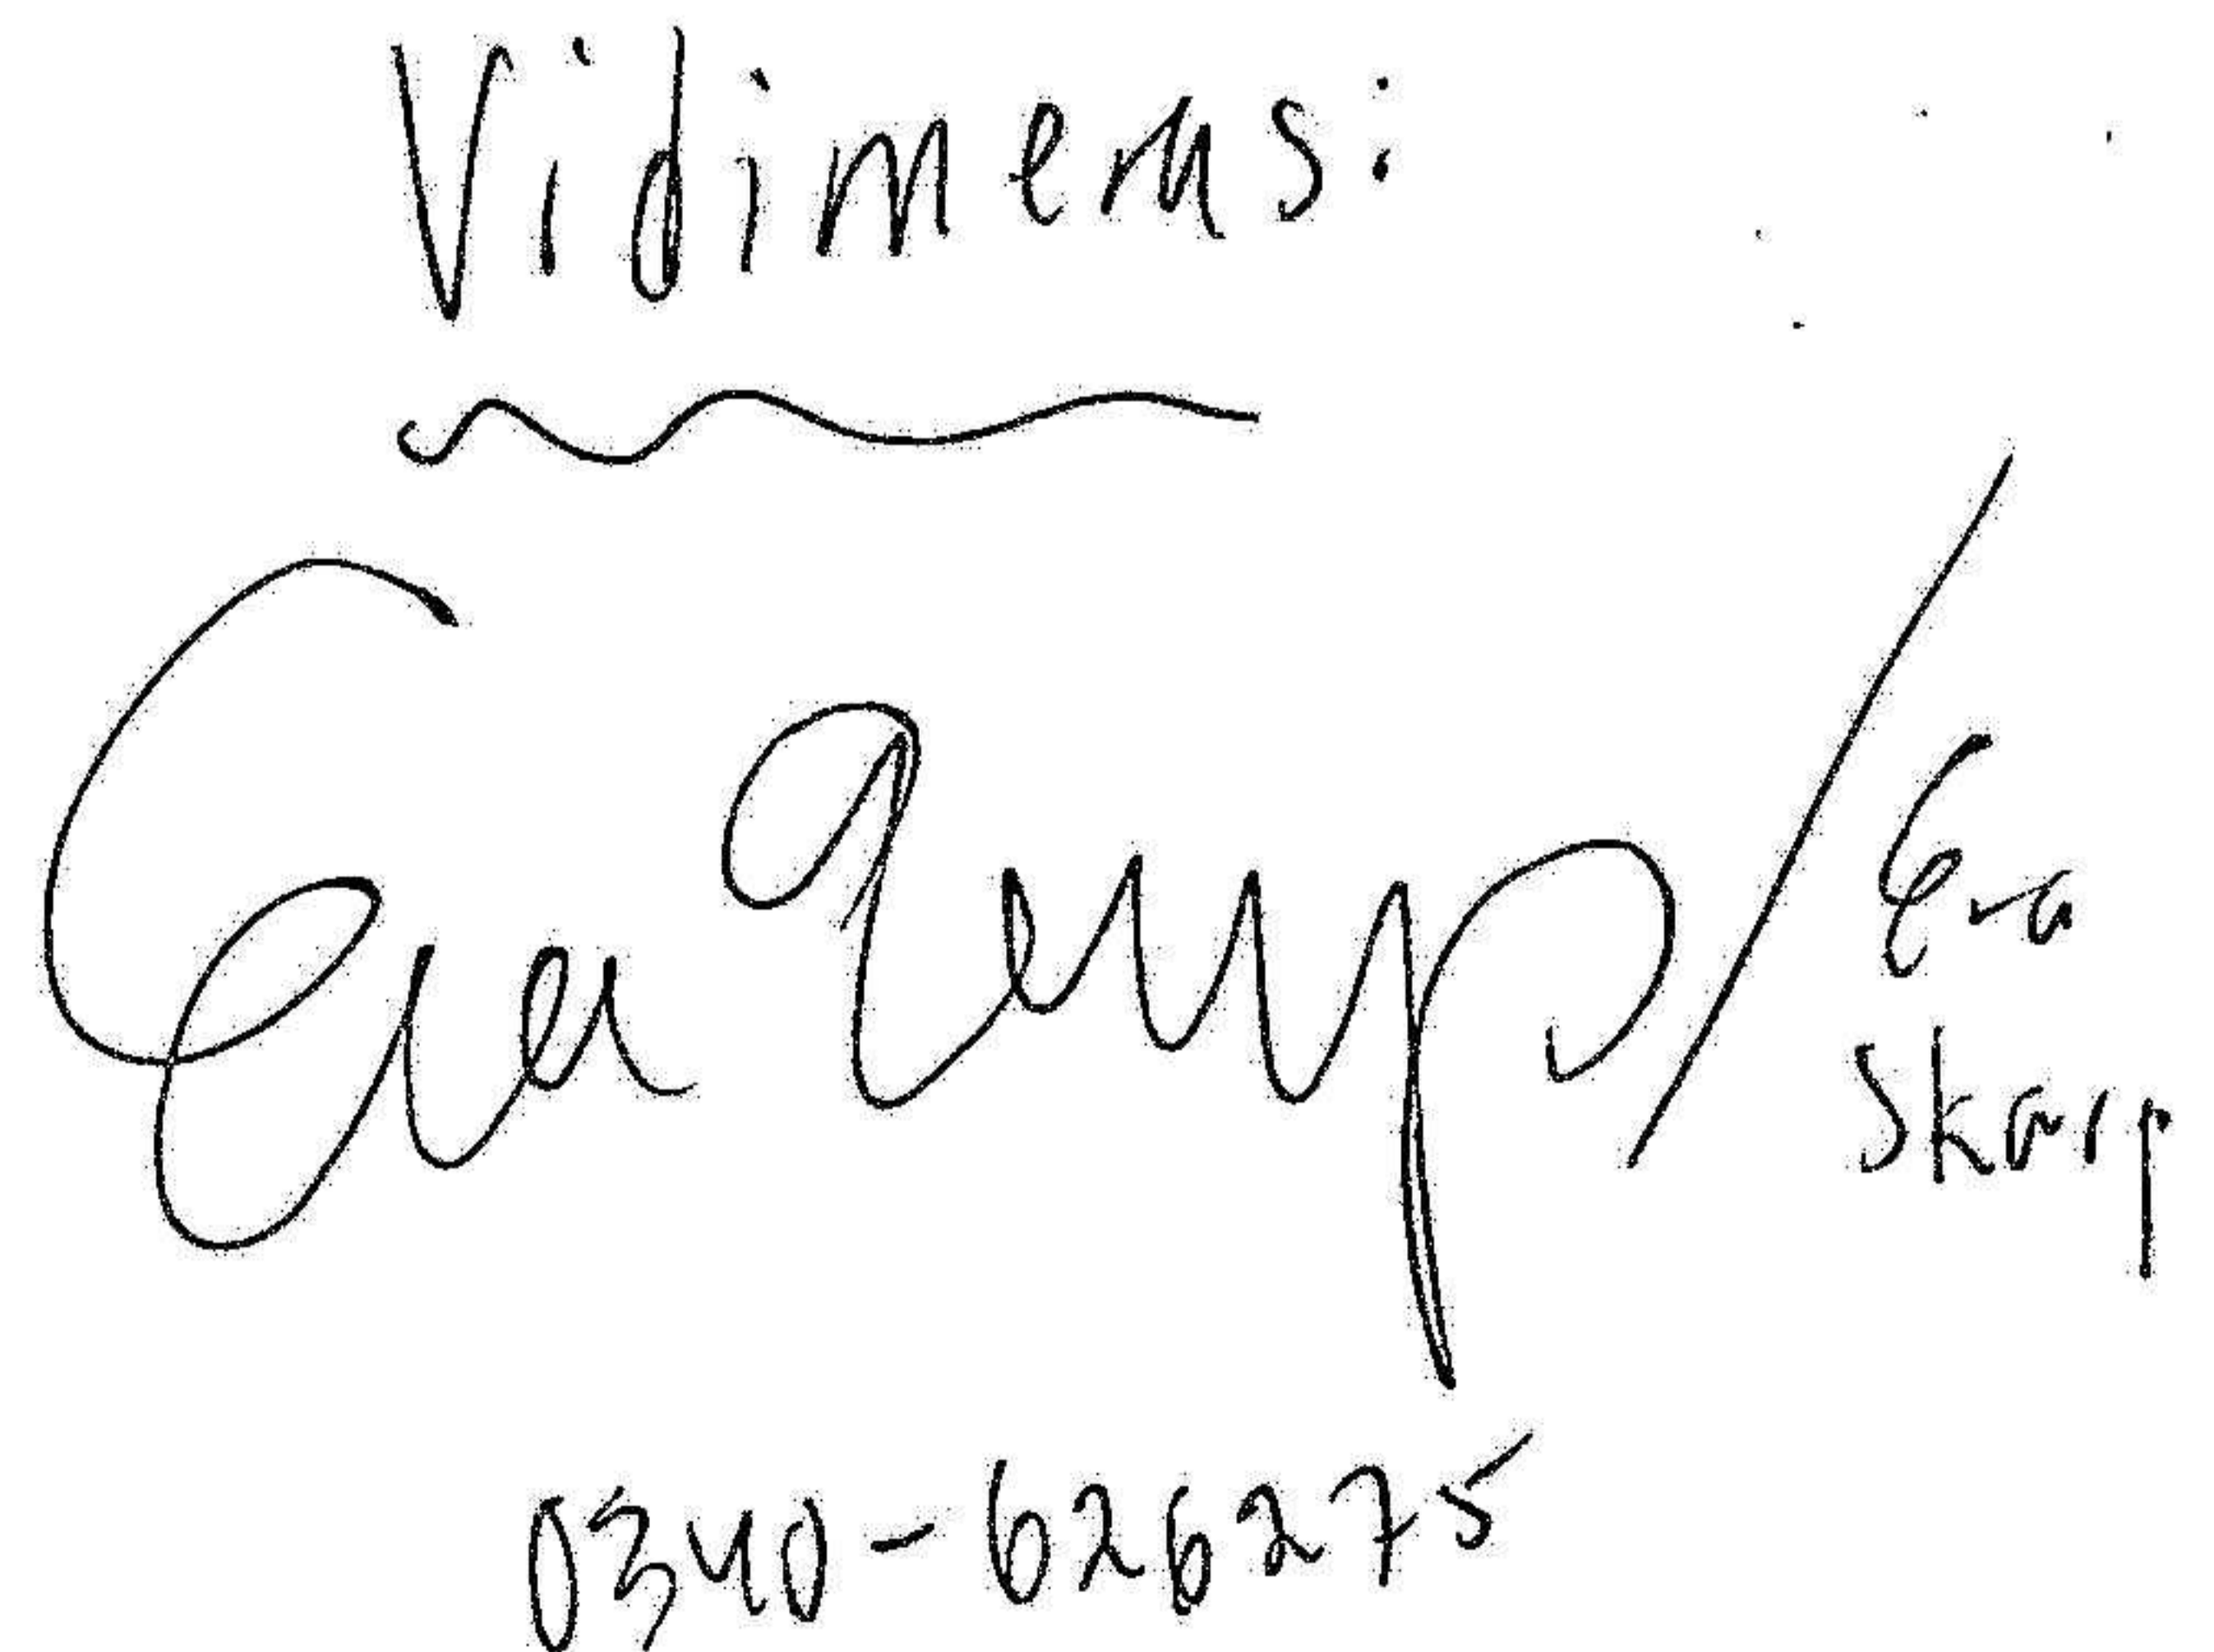 Vidimeras:
Eva Skarp / Eva
Skarp
0340-626275